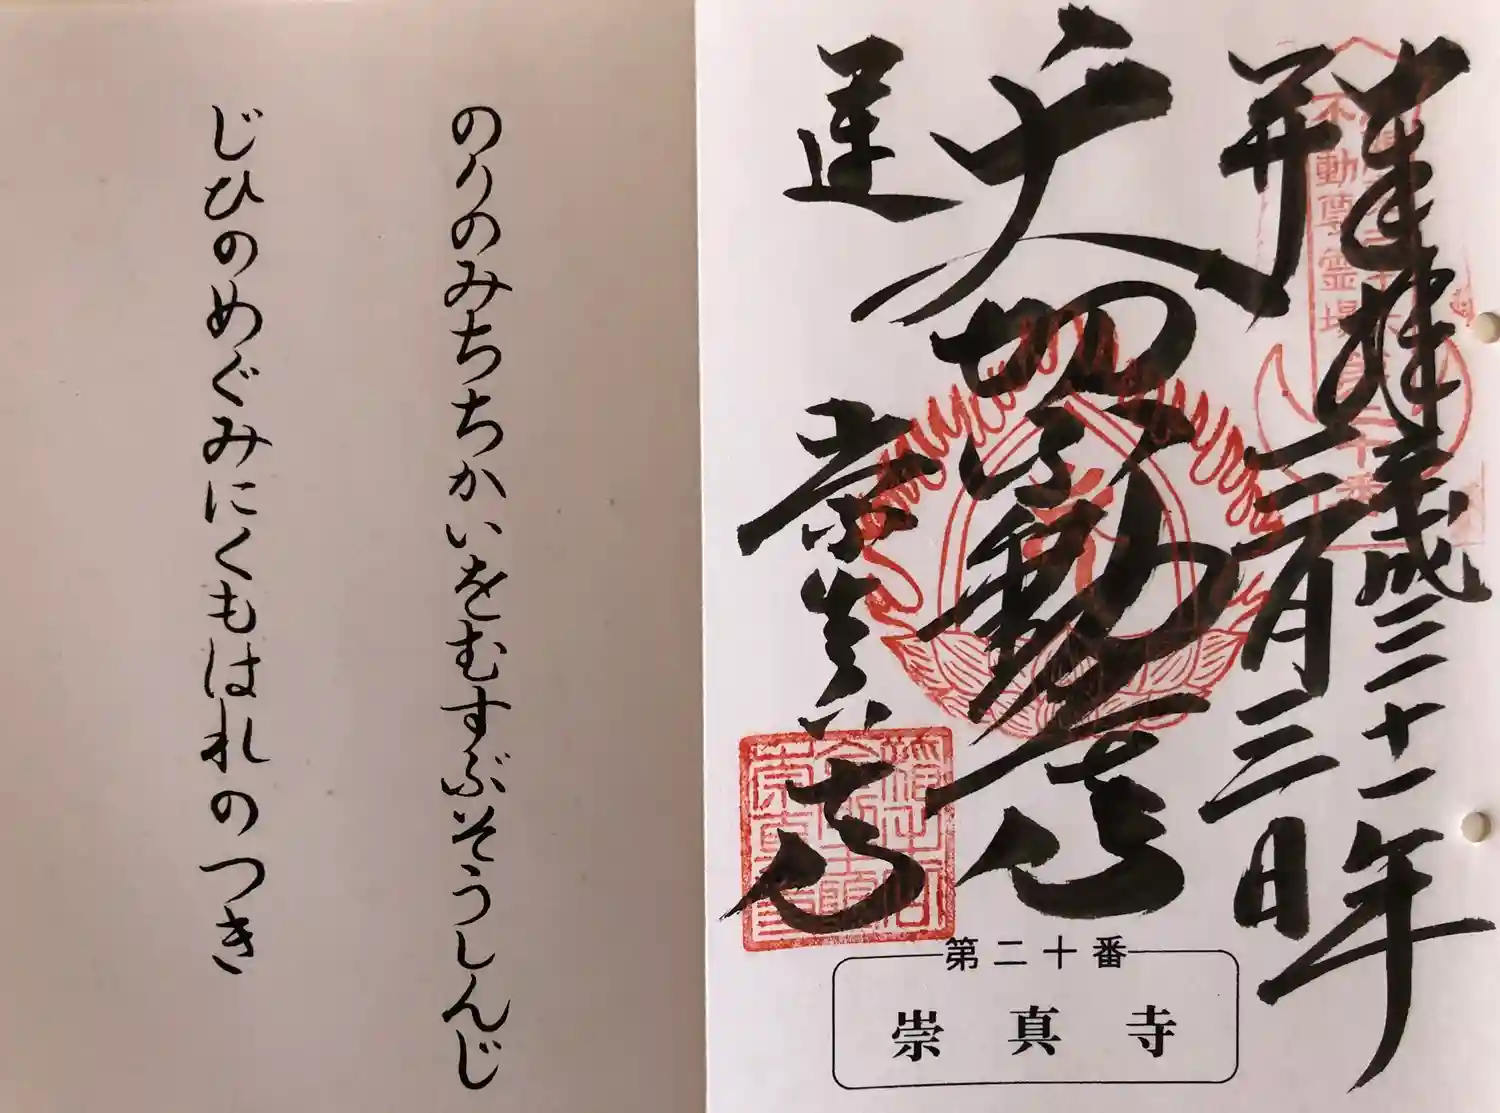 奉拝 平成三十一年
三月三日
開運
切不動尊
崇真寺
不動尊霊場
第二十番
崇真寺
のりのみちちかいをむすぶそうしんじ
じひのめぐみにくもはれのつき